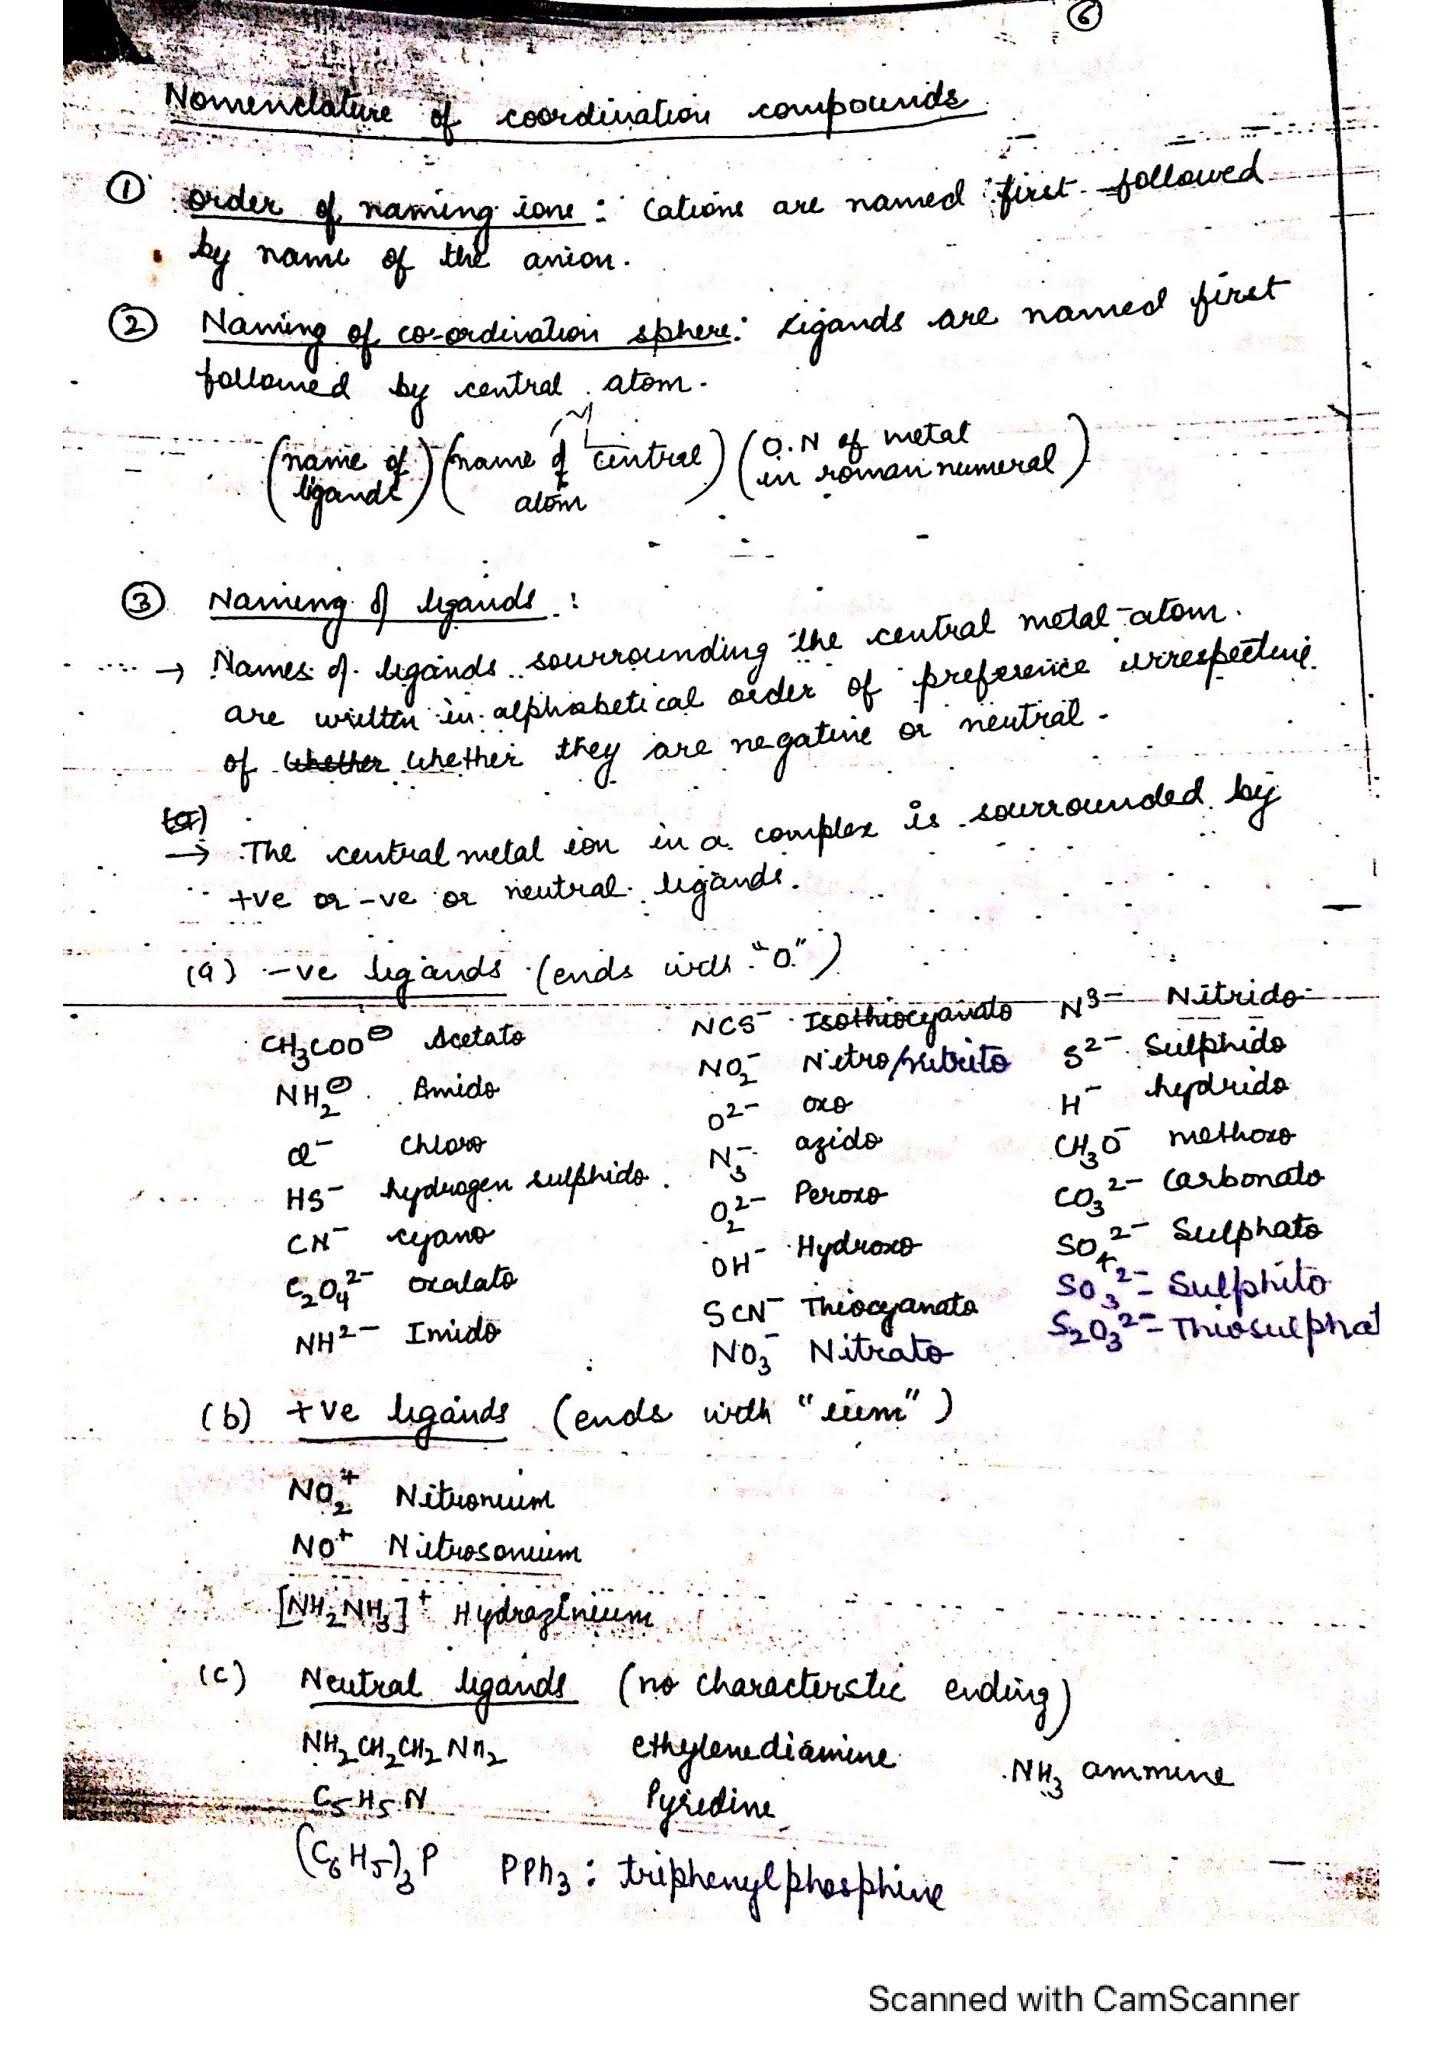 6
Nomenclature of coordination compounds
① order of naming ions : Cations are named first followed
by name of the anion.
② Naming of co-ordination sphere: Ligands are named first
followed by central atom.
(name of ligands) (name of central atom) (O.N of metal in roman numeral)
③ Naming of ligands :
→ Names of ligands sourrounding the central metal atom
are written in alphabetical order of preference irrespective
of whether whether they are negative or neutral.
→ The central metal ion in a complex is sourrounded by
+ve or -ve or neutral ligands.
(a) -ve ligands (ends with "O")
CH₃COO⊖ Acetato NCS⁻ Isothiocyanato N³⁻ Nitrido
NH₂⊖ Amido NO₂⁻ Nitro/nitrito S²⁻ Sulphido
Cl⁻ Chloro O²⁻ oxo H⁻ hydrido
HS⁻ hydrogen sulphido N₃⁻ azido CH₃O⁻ methoxo
CN⁻ cyano O₂²⁻ Peroxo CO₃²⁻ Carbonato
C₂O₄²⁻ oxalato OH⁻ Hydroxo SO₄²⁻ Sulphato
NH²⁻ Imido SCN⁻ Thiocyanato SO₃²⁻ Sulphito
NO₃⁻ Nitrato S₂O₃²⁻ Thiosulphat
(b) +ve ligands (ends with "ium")
NO₂⁺ Nitronium
NO⁺ Nitrosonium
[NH₂NH₃]⁺ Hydrazinium
(c) Neutral ligands (no characterstic ending)
NH₂CH₂CH₂NH₂ ethylenediamine NH₃ ammine
C₅H₅N Pyridine
(C₆H₅)₃P PPh₃ : triphenylphosphine
Scanned with CamScanner